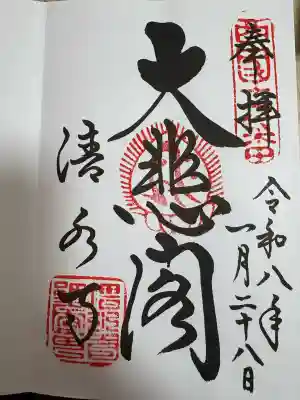 奉拝
令和八年
一月二十八日
大悲閣
清水寺